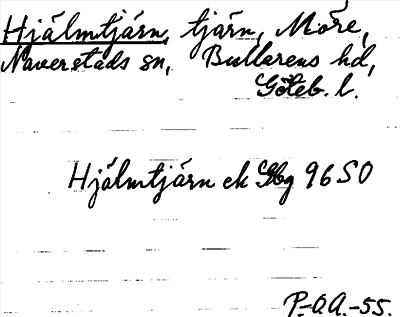 Hjälmtjärn, tjärn, Möre,
Naverstads sn, Bullarens hd,
Göteb. l.
Hjälmtjärn ek Gbg 96 SO
P.-O.A.-55.